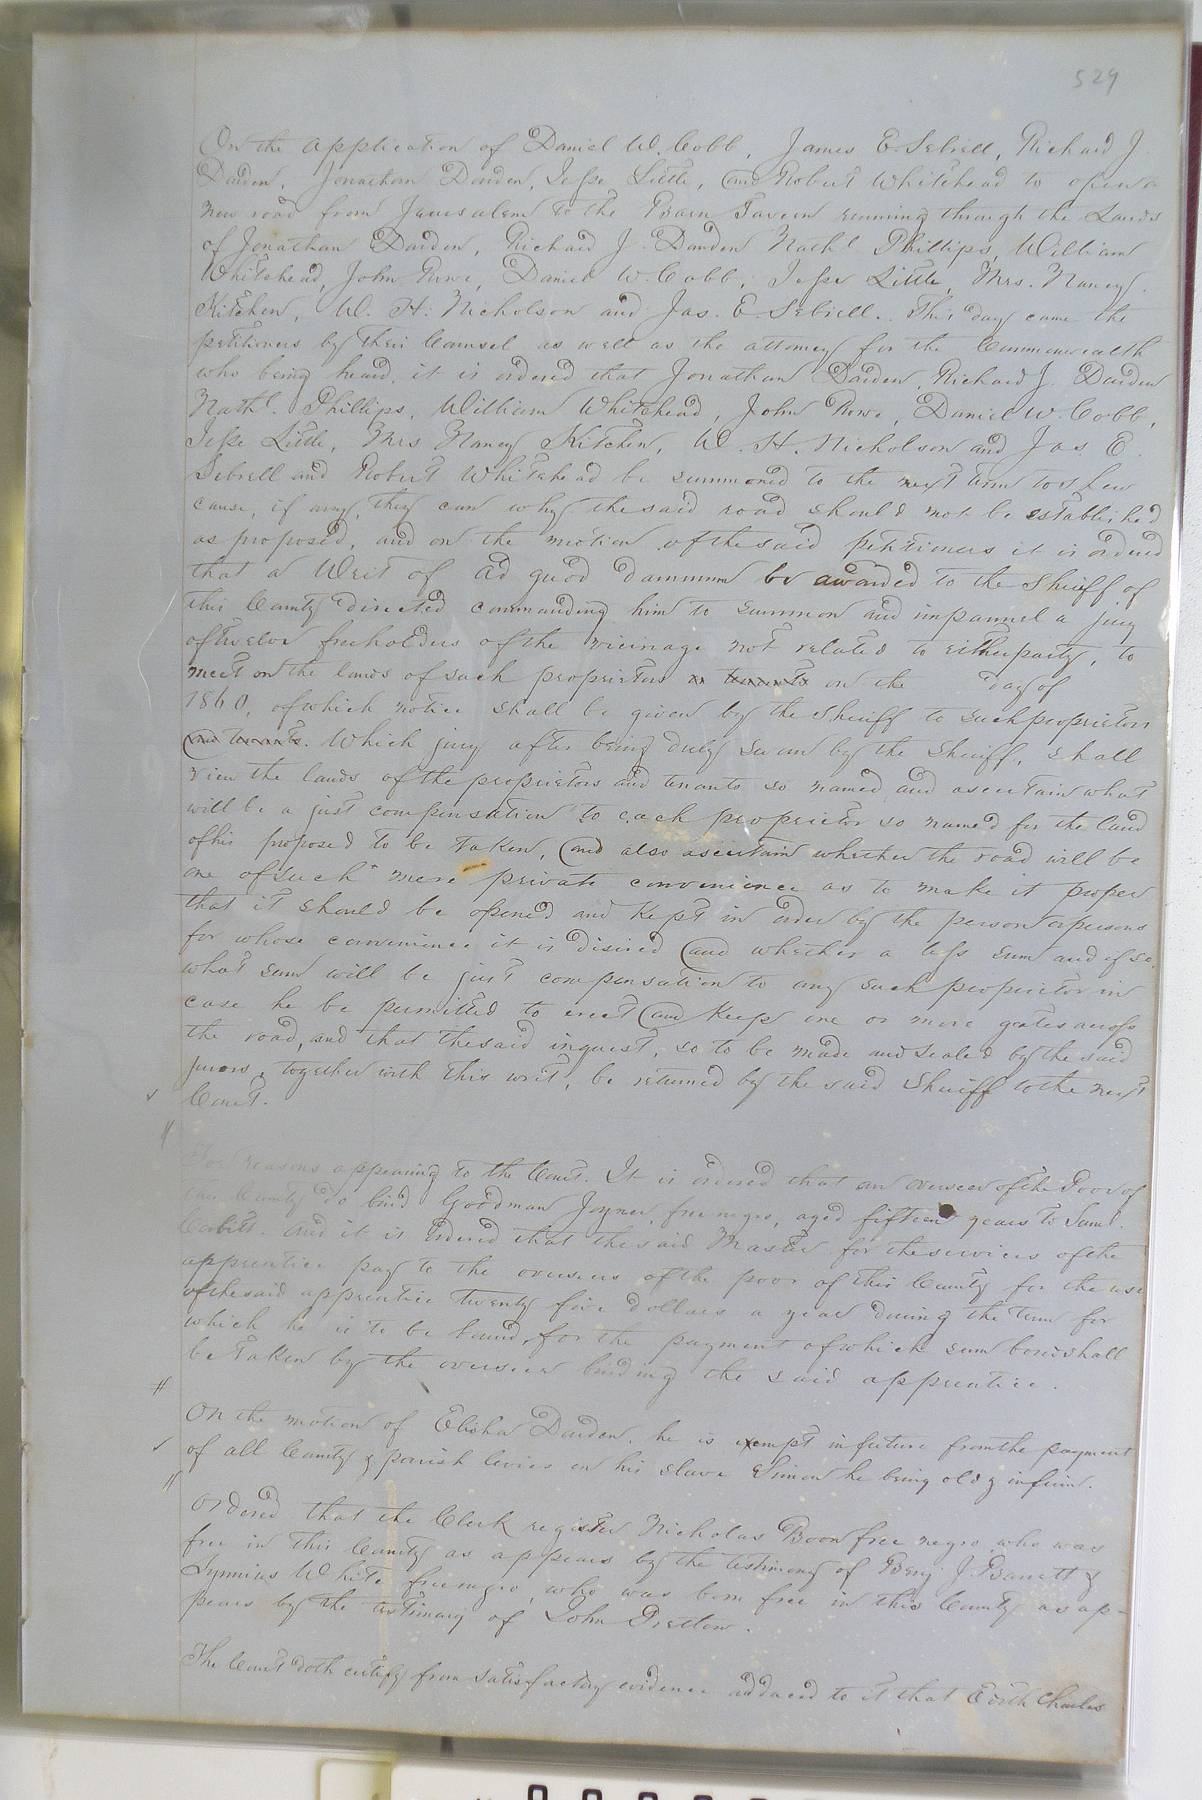 529
On the application of Daniel W. Cobb, James E. Sebrell, Richard J.
Darden, Jonathan Darden, Jesse Little, and Robert Whitehead to open a
new road from Jerusalem to the Barn Tavern running through the Lands
of Jonathan Darden, Richard J. Darden Nathl Phillips, William
Whitehead, John Rowe, Daniel W. Cobb, Jesse Little, Mrs. Nancy
Kitchen, W. H. Nicholson and Jas. E. Sebrell. This day came the
petitioners by their Counsel as well as the attorney for the Commonwealth
who being heard, it is ordered that Jonathan Darden, Richard J. Darden
Nathl. Phillips, William Whitehead, John Rowe, Daniel W. Cobb,
Jesse Little, Mrs Nancy Kitchen, W. H. Nicholson and Jas. E.
Sebrell and Robert Whitehead be summoned to the next term to shew
cause, if any, they can why the said road should not be established
as proposed, and on the motion of the said petitioners it is ordered
that a Writ of ad quod damnum be awarded to the Sheriff of
this County directed commanding him to summon and impannel a jury
of twelve freeholders of the vicinage not related to either party, to
meet on the lands of such proprietors or tenants on the day of
1860, of which notice shall be given by the Sheriff to such proprietors
and tenants. Which jury after being duly sworn by the Sheriff, shall
view the lands of the proprietors and tenants so named and ascertain what
will be a just compensation to each proprietor so named for the land
of his proposed to be taken, and also ascertain whether the road will be
one of such mere private convenience as to make it proper
that it should be opened and kept in order by the person or persons
for whose convenience it is disired and whether a less sum and if so
what sum will be just compensation to any such proprietor in
case he be permitted to erect and keep one or more gates across
the road, and that the said inquest, so to be made and sealed by the said
jurors, together with this writ, be returned by the said Sheriff to the next
Court.
For reasons appearing to the Court. It is ordered that an overseer of the Poor of
this County do bind Goodman Joyner, free negro, aged fifteen years to Saml.
And it is ordered that the said Master for the services of the
apprentice pay to the overseers of the poor of this County for the use
of the said apprentice twenty five dollars a year during the term for
which he is to be bound, for the payment of which sum bond shall
be taken by the overseer binding the said apprentice.
On the motion of Elisha Darden, he is exempt in future from the payment
of all County & parish levies on his slave Simon he being old & infirm.
Ordered that the Clerk register Nicholas Boon free negro who was
free in this County as appears by the testimony of Benj. J. Barrett &
White free negro, who was born free in this County as ap-
pears by the testimony of John Pretlow.
The Court doth certify from satisfactory evidence adduced to it that Edith Charles